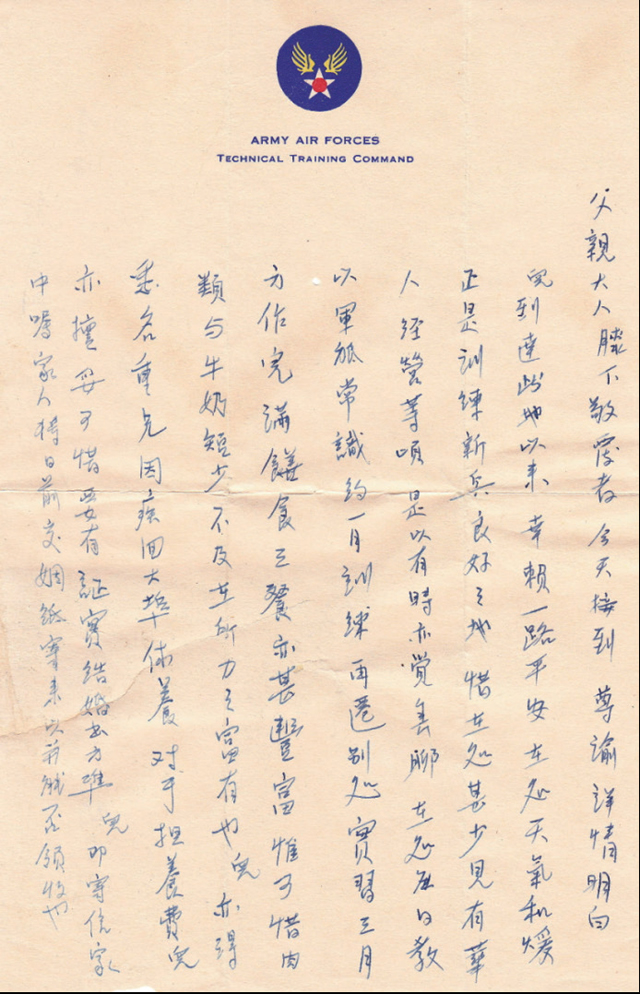 ARMY AIR FORCES
TECHNICAL TRAINING COMMAND
父親大人膝下敬禀者 今天接到 尊諭詳情明白
兒到達此地以來 幸賴一路平安 在处天氣和煖
正是訓練新兵良好之地 惜在处甚少見有華
人經營等項 是以有時亦覺無聊 在处每日教
以軍武常識 約一月訓練 再遷别处實習三月
方作完滿 饍食三餐亦甚豐富 惟可惜肉
類与牛奶短少 不及在所力之富有也 兒亦得
重兄因疾回大埠休養 对于担養費兒
亦擅妥 可惜要有証實結婚書方準 兒即寄信家
中嘱家人将日前交婚紙寄來 以前能否領收也